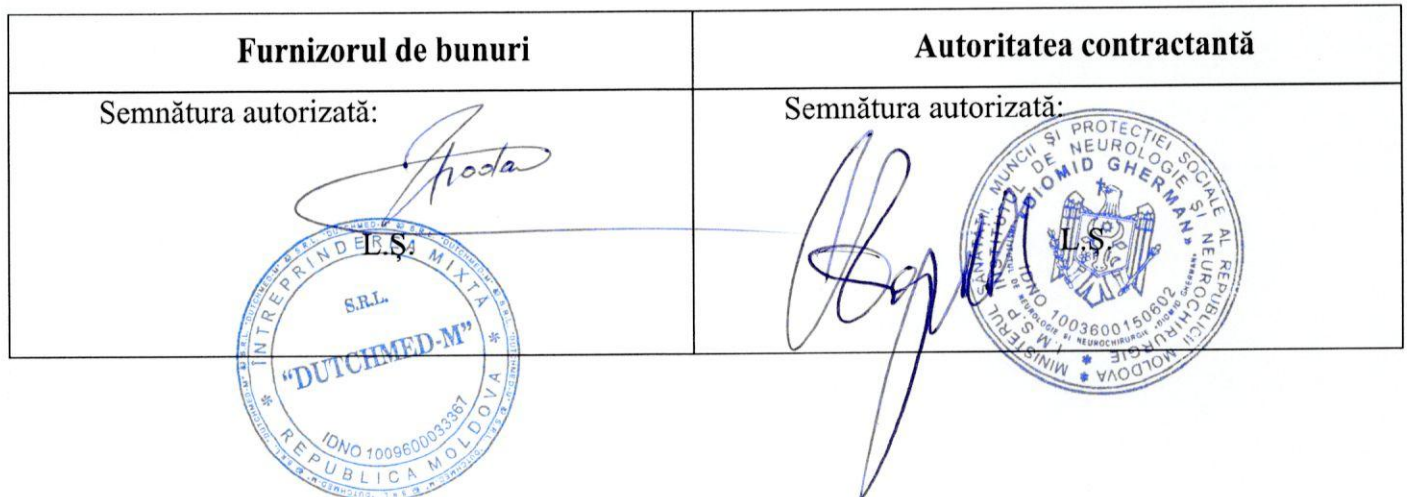 Furnizorul de bunuri
Autoritatea contractantă
Semnătura autorizată:
Semnătura autorizată:
L.Ş.
L.Ş.
ÎNTREPRINDEREA MIXTĂ
S.R.L.
“DUTCHMED-M”
IDNO 1009600033367
REPUBLICA MOLDOVA
MINISTERUL SĂNĂTĂȚII, MUNCII ȘI PROTECȚIEI SOCIALE AL REPUBLICII MOLDOVA
I.M.S.P. INSTITUTUL DE NEUROLOGIE ȘI NEUROCHIRURGIE
“DIOMID GHERMAN”
IDNO 1003600150602